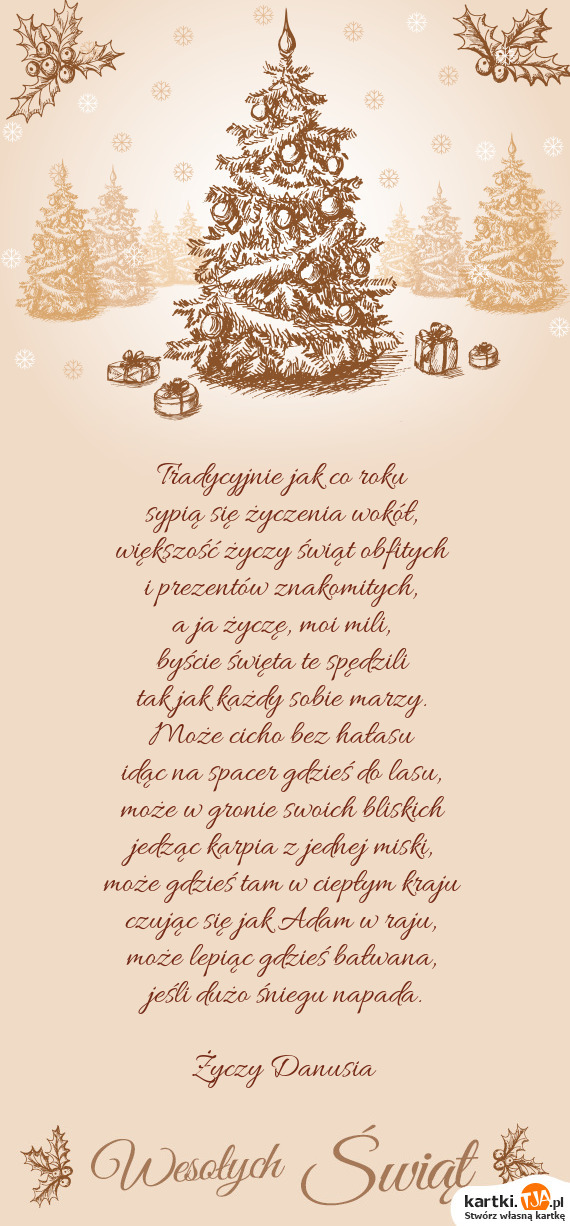 Tradycyjnie jak co roku
sypią się życzenia wokół,
większość życzy świąt obfitych
i prezentów znakomitych,
a ja życzę, moi mili,
byście święta te spędzili
tak jak każdy sobie marzy.
Może cicho bez hałasu
idąc na spacer gdzieś do lasu,
może w gronie swoich bliskich
jedząc karpia z jednej miski,
może gdzieś tam w ciepłym kraju
czując się jak Adam w raju,
może lepiąc gdzieś bałwana,
jeśli dużo śniegu napada.
Życzy Danusia
Wesołych Świąt
kartki.TJA.pl
Stwórz własną kartkę